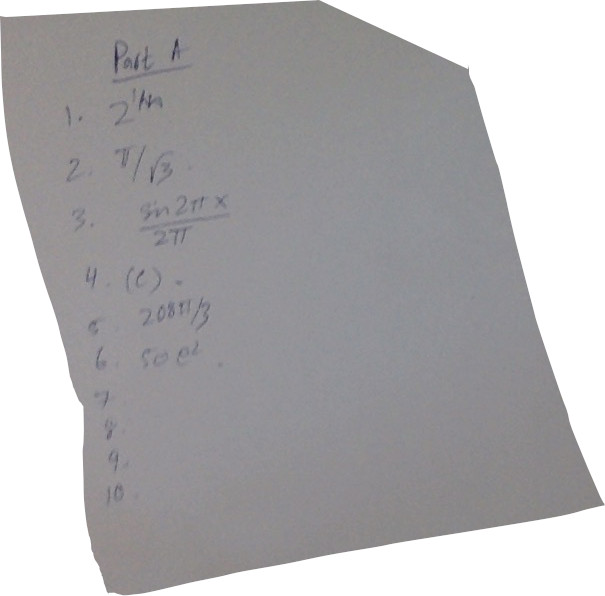 Part A
1.
2. π/√3.
3. sin2πx/2π
4. (C).
5. 208π/3
6. 50e².
7.
8.
9.
10.